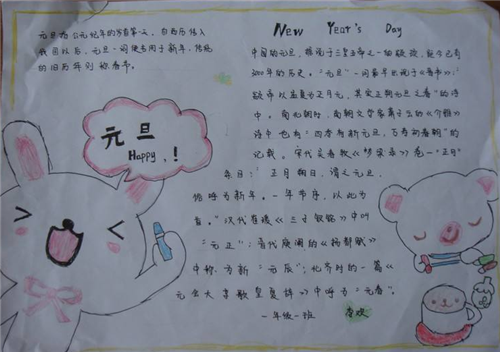 元旦为公元纪年的岁首第一天，自西历传入
我国以后，元旦一词便专用于新年，传统
的旧历年则称春节。
New Year's Day
元旦
Happy,!
中国的元旦，据说于三皇五帝之一的颛顼，距今已有
3000年的历史。"元旦"一词最早出现于《晋书》：
"颛帝以孟夏为正月元，其实正朔元旦之春"的诗
中。南北朝时，南朝文学家萧子云的《介雅》
诗中也有"四季新元旦，万寿初春朝"的
记载。宋代吴自牧《梦粱录》卷一"正月"
条目："正月朔日，谓之元旦，
俗呼为新年。一年节序，以此为
首。"汉代崔瑗《三子钗铭》中叫
"元正"；晋代庾阐的《扬都赋》
中称为新"元辰"；北齐时的一篇《
元会大享歌皇夏辞》中呼为"元春"。
一年级一班